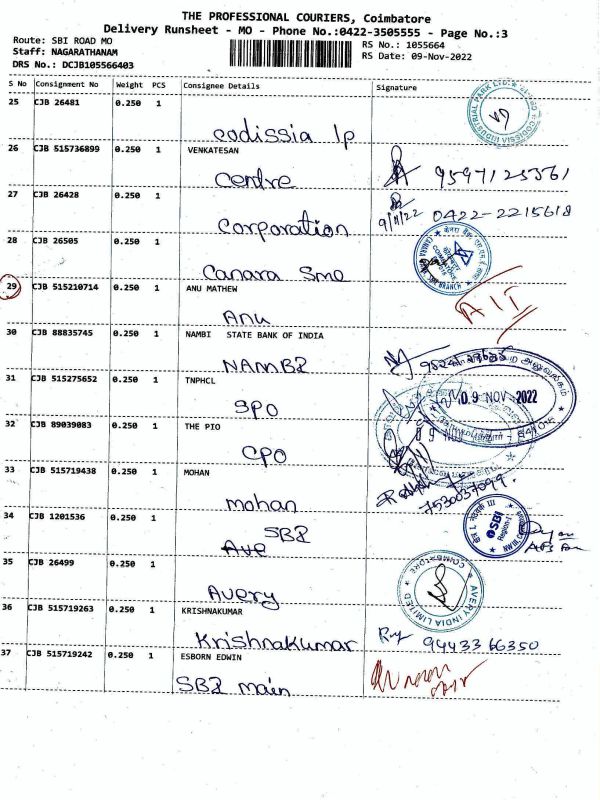 THE PROFESSIONAL COURIERS, Coimbatore
Delivery Runsheet - MO - Phone No.:0422-3505555 - Page No.:3
Route: SBI ROAD MO
Staff: NAGARATHANAM
DRS No.: DCJB105566403
RS No.: 1055664
RS Date: 09-Nov-2022
S No Consignment No Weight PCS Consignee Details Signature
25 CJB 26481 0.250 1
codissia Ip
CODISSIA INDUSTRIAL PARK LTD
26 CJB 515736899 0.250 1 VENKATESAN
Centre
9597125561
27 CJB 26428 0.250 1
Corporation
9/11/22 0422-2215618
28 CJB 26505 0.250 1
Canara Sme
29 CJB 515210714 0.250 1 ANU MATHEW
Anu
30 CJB 88835745 0.250 1 NAMBI STATE BANK OF INDIA
NAMBI
31 CJB 515275652 0.250 1 TNPHCL
SPO
09 NOV 2022
32 CJB 89039083 0.250 1 THE PIO
CPO
09 NOV
33 CJB 515719438 0.250 1 MOHAN
mohan
7530037099
34 CJB 1201536 0.250 1
SBI
Ave
SBI
Region-I
35 CJB 26499 0.250 1
Avery
AVERY INDIA LIMITED
COIMBATORE
36 CJB 515719263 0.250 1 KRISHNAKUMAR
Krishnakumar
9443366350
37 CJB 515719242 0.250 1 ESBORN EDWIN
SBI main